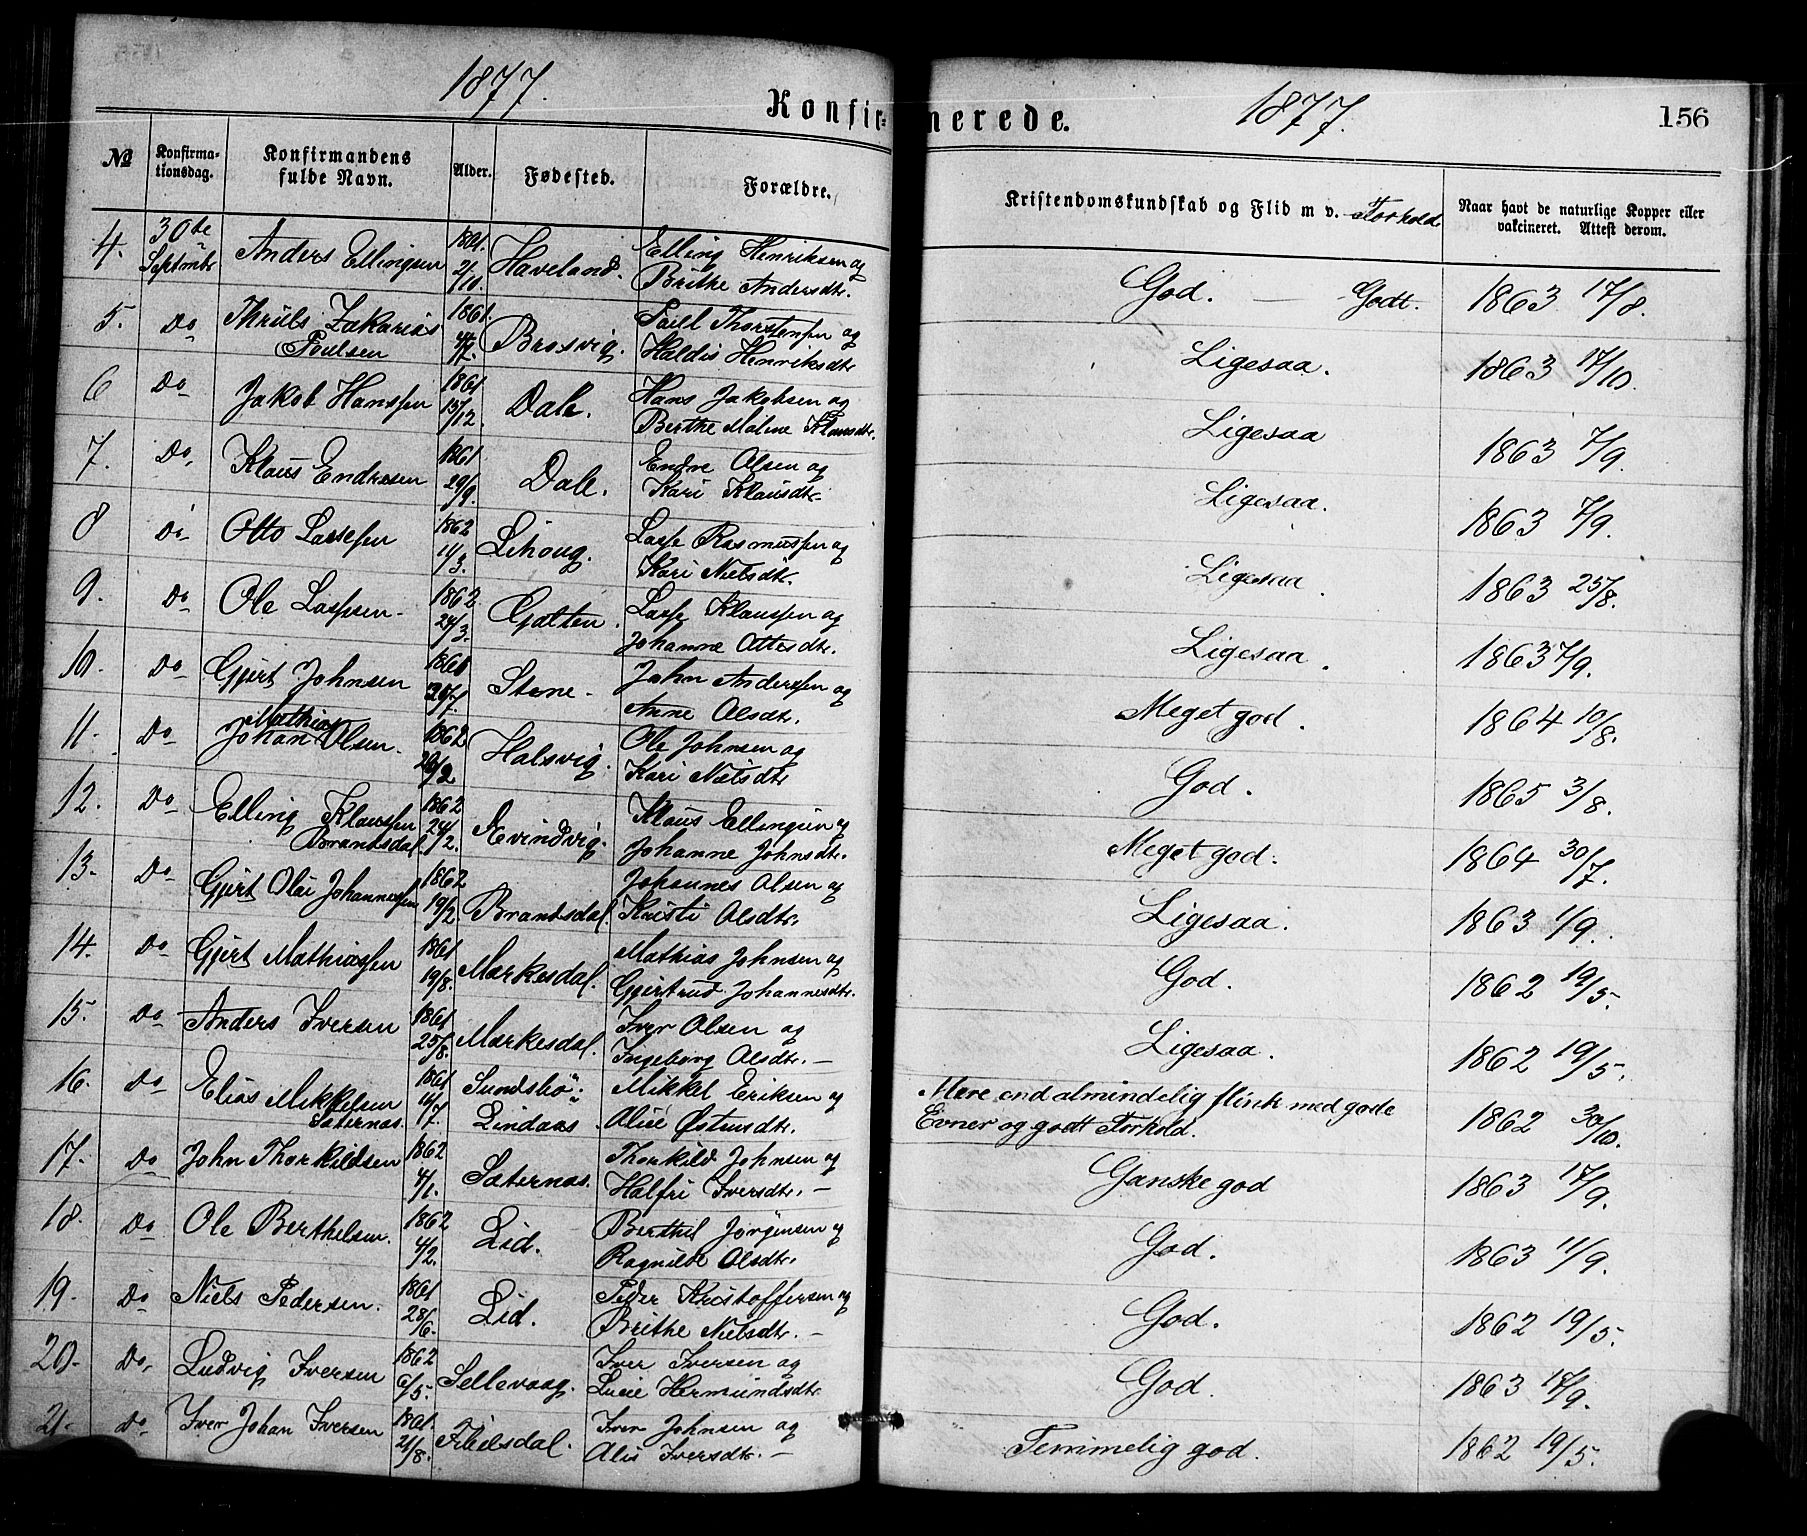 1877. Konfirmerede. 1877. 156
№ Konfirmationsdag. Konfirmandens fulde Navn. Alder. Fødested. Forældre. Kristendomskundskab og Flid m v. Forhold Naar havt de naturlige Kopper eller vakcineret. Attest derom.
4. 30te Septmbr Anders Ellingsen 1861 2/10. Haveland. Elling Henriksen og Brithe Andersdtr. God. — Godt. 1863 17/8.
5. Do Thruls Zakarias Poulsen 1861 4/7. Brosvig. Poul Thorstensen og Haldis Henriksdtr Ligesaa. 1863 17/10.
6 Do Jakob Hanssen 1861 15/12. Dale. Hans Jakobsen og Berthe Malene Klausdtr. Ligesaa 1863 7/9.
7. Do, Klaus Endresen 1861 29/9. Dale. Endre Olsen og Kari Klausdtr Ligesaa. 1863 7/9.
8 Do Otto Lassesen 1862 11/3. Lihoug. Lasse Rasmussen og Kari Nielsdtr. Ligesaa. 1863 25/8.
9. Do Ole Lassesen 1862 24/3. Galten. Lasse Klaussen og Johanne Ottesdtr. Ligesaa. 1863 7/9.
10. Do Gjert Johnsen 1861 Stene John Anderssen og Anne Olsdtr. Meget god. 1864 10/8.
11. Do Johan Mathias Olsen. 1862 20/2 Halsvig. Ole Johnsen og Kari Nielsdtr God. 1865 3/8.
12. Do Elling Klaussen Brandsdal 1862 24/2. Evindvig. Klaus Ellingsen og Johanne Johnsdtr. Meget god. 1864 30/7.
13. Do Gjert Olai Johannessen 1862 19/2 Brandsdal. Johannes Olsen og Kristi Olsdtr. Ligesaa. 1863 1/9.
14. Do Gjert Mathiassen 1861 19/8. Markesdal. Mathias Johnsen og Gjertrud Johannesdtr. God. 1862 19/5.
15. Do Anders Iversen 1861 25/8. Markesdal. Iver Olsen og Ingeborg Olsdtr. — Ligesaa. 1862 19/5.
16. Do Elias Mikkelsen Sæternæs. 1861 /7. Sundsbö i Lindaas. Mikkel Eriksen og Alice Østensdtr. Mere end almindelig flink med gode Evner og godt Forhold. 1862 30/10.
17. Do John Thorkildsen 1862 4/1. Sæternæs. Thorkild Johnsen og Halfri Iversdtr. — Ganske god 1863 17/9.
18. Do Ole Berthelsen. 1862 4/2. Lid. Berthel Jørgensen og Ragnilde Olsdtr. God. 1863 11/9.
19. Do Niels Pedersen. 1861 28/6. Lid. Peder Kristoffersen og Brithe Nielsdtr. — God. 1862 19/5.
20. Do, Ludvig Iversen 1862 6/5. Sellevaag. Iver Iversen og Lucie Hermundsdtr God. 1863 17/9.
21. Do Iver Johan Iversen 1861. 21/8. Fibelsdal. Iver Johnsen og Alis Iversdtr. — Temmelig god. 1862 19/5.